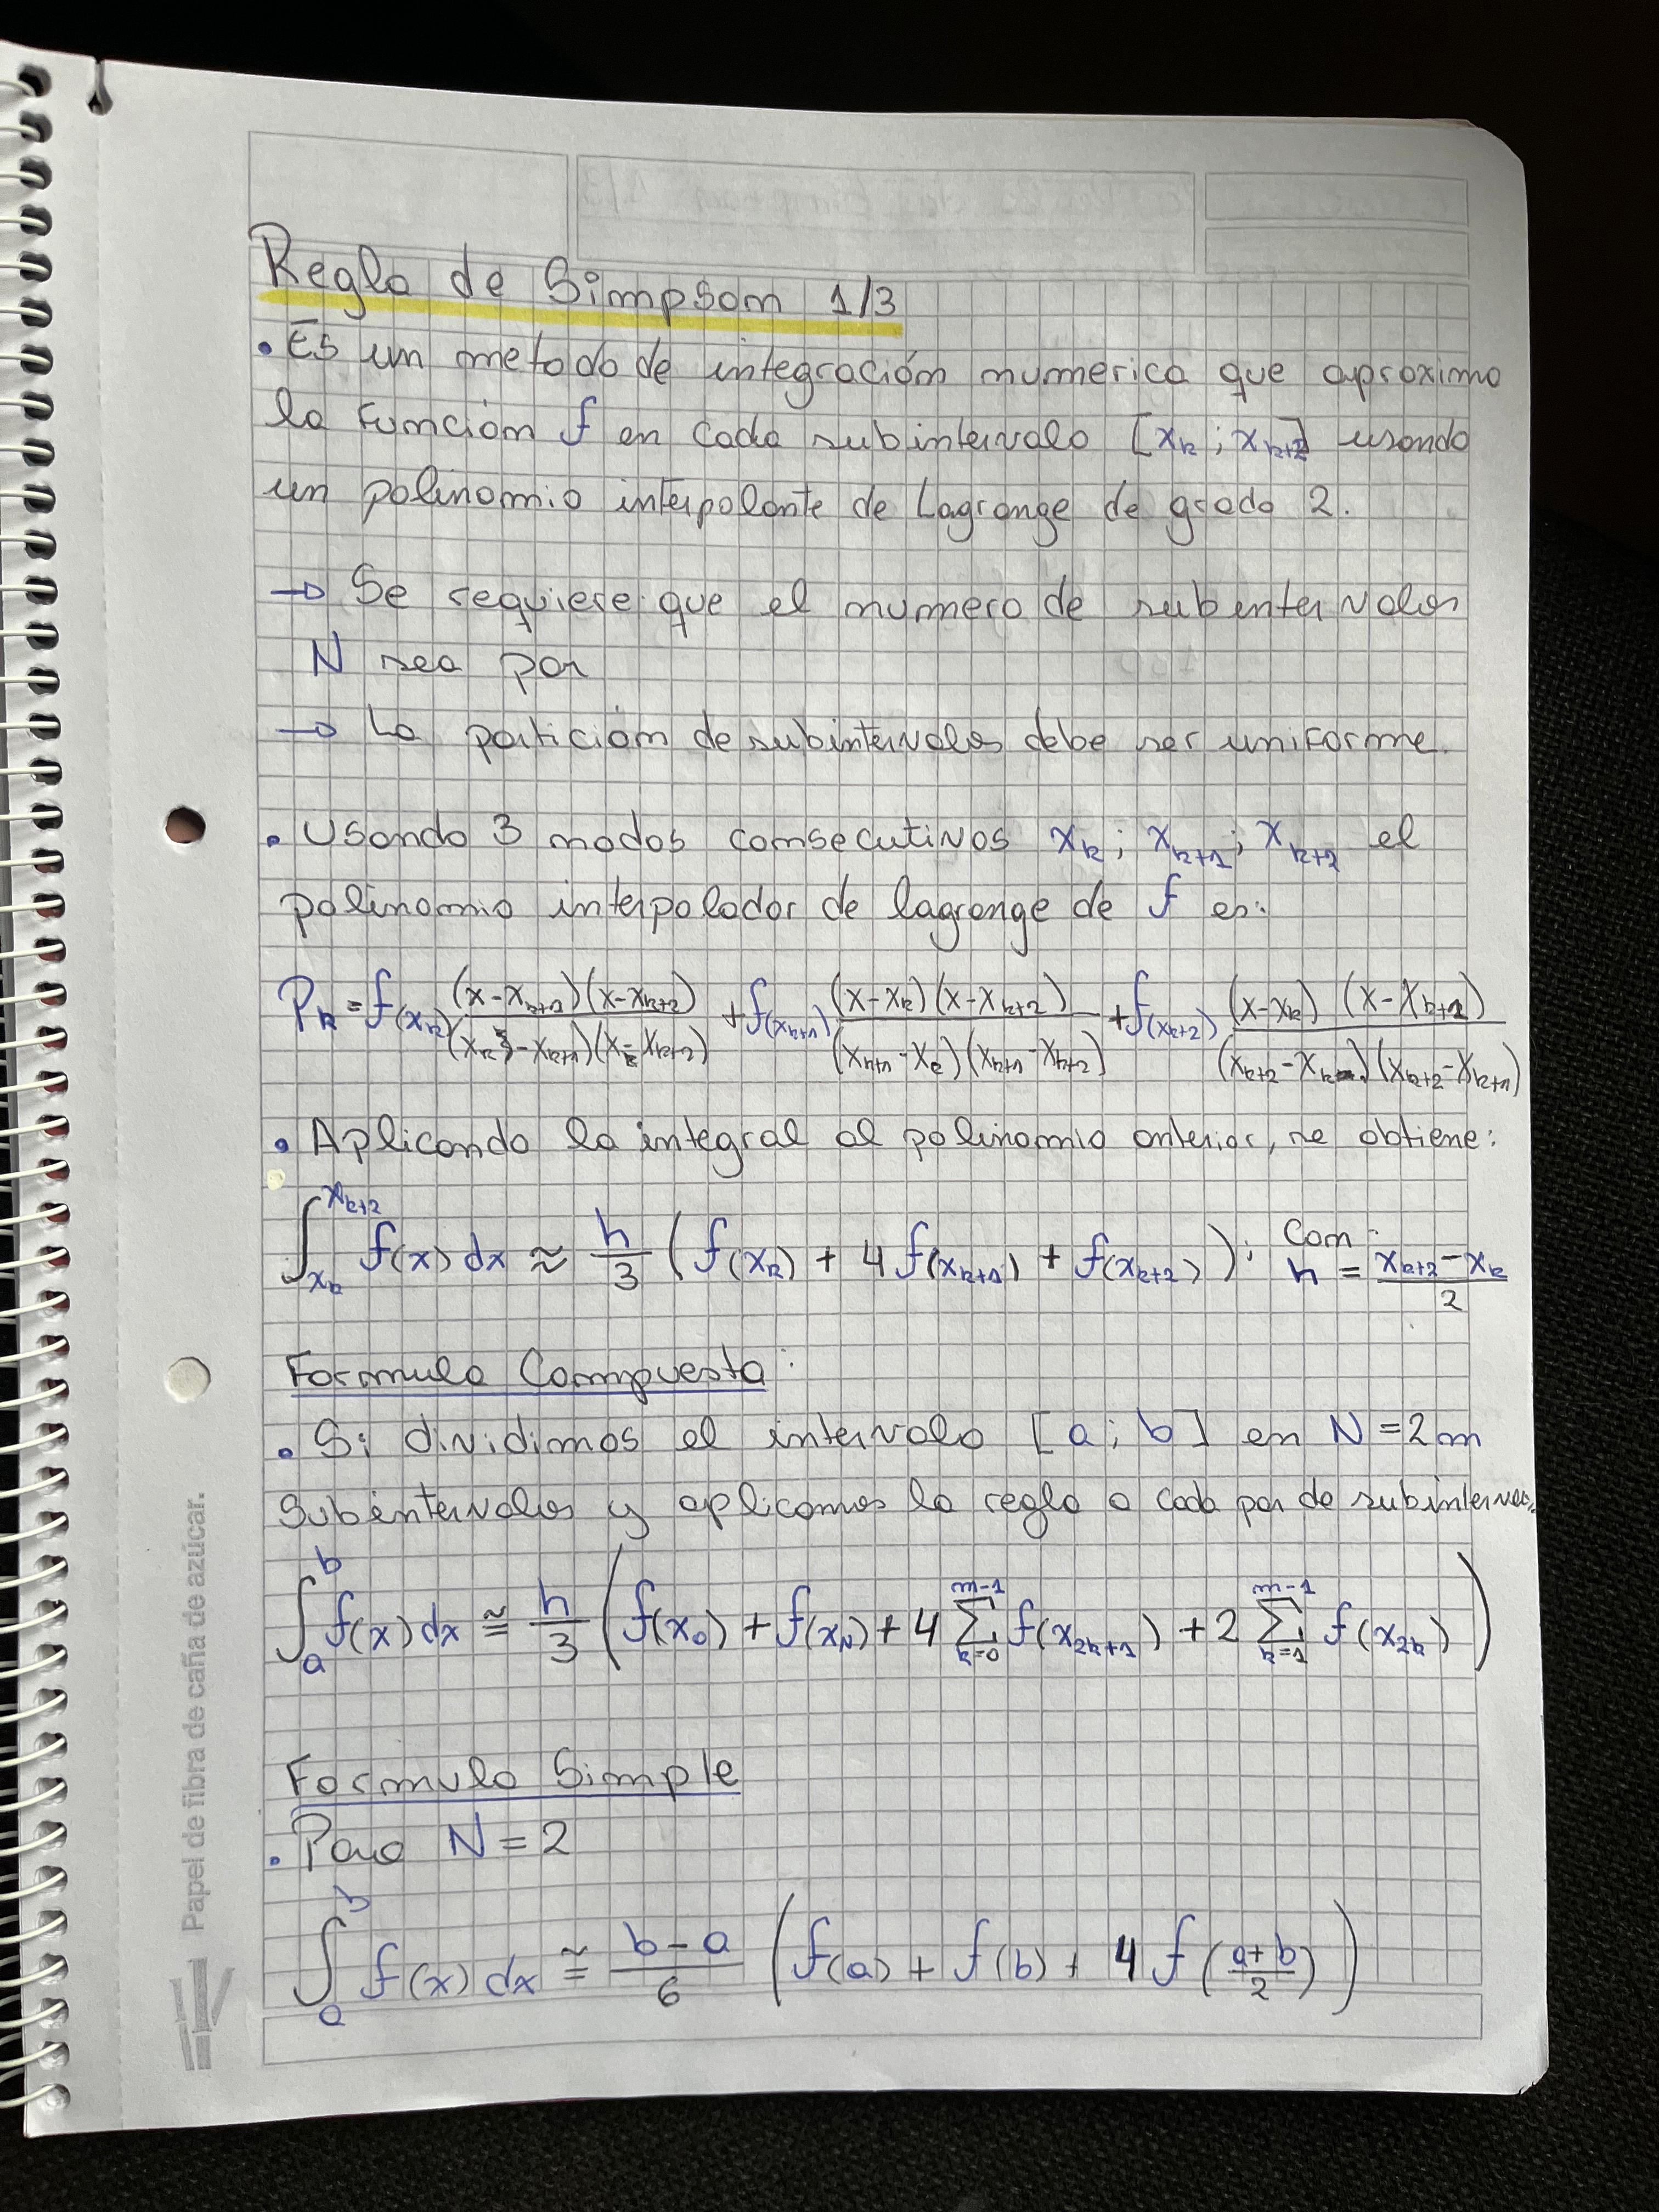 Regla de Simpson 1/3
• Es un metodo de integración numerica que aproxima
la función f en cada subintervalo [x_k ; x_{k+2}] usando
un polinomio interpolante de Lagrange de grado 2.
→ Se requiere que el numero de subintervalos
N sea par
→ La partición de subintervalos debe ser uniforme.
• Usando 3 nodos consecutivos x_k ; x_{k+1} ; x_{k+2} el
polinomio interpolador de lagrange de f es:
P_k = f(x_k) (x-x_{k+1})(x-x_{k+2}) / (x_k-x_{k+1})(x_k-x_{k+2}) + f(x_{k+1}) (x-x_k)(x-x_{k+2}) / (x_{k+1}-x_k)(x_{k+1}-x_{k+2}) + f(x_{k+2}) (x-x_k)(x-x_{k+1}) / (x_{k+2}-x_k)(x_{k+2}-x_{k+1})
• Aplicando la integral al polinomio anterior, se obtiene:
∫_{x_k}^{x_{k+2}} f(x) dx ≈ h/3 ( f(x_k) + 4 f(x_{k+1}) + f(x_{k+2}) ) ; Con h = (x_{k+2} - x_k)/2
Formula Compuesta:
• Si dividimos el intervalo [a ; b] en N = 2m
subintervalos y aplicamos la regla a cada par de
∫_a^b f(x) dx ≅ h/3 ( f(x_0) + f(x_N) + 4 Σ_{k=0}^{m-1} f(x_{2k+1}) + 2 Σ_{k=1}^{m-1} f(x_{2k}) )
Formula Simple
• Para N = 2
∫_a^b f(x) dx ≅ (b-a)/6 ( f(a) + f(b) + 4 f((a+b)/2) )
Papel de fibra de caña de azúcar.